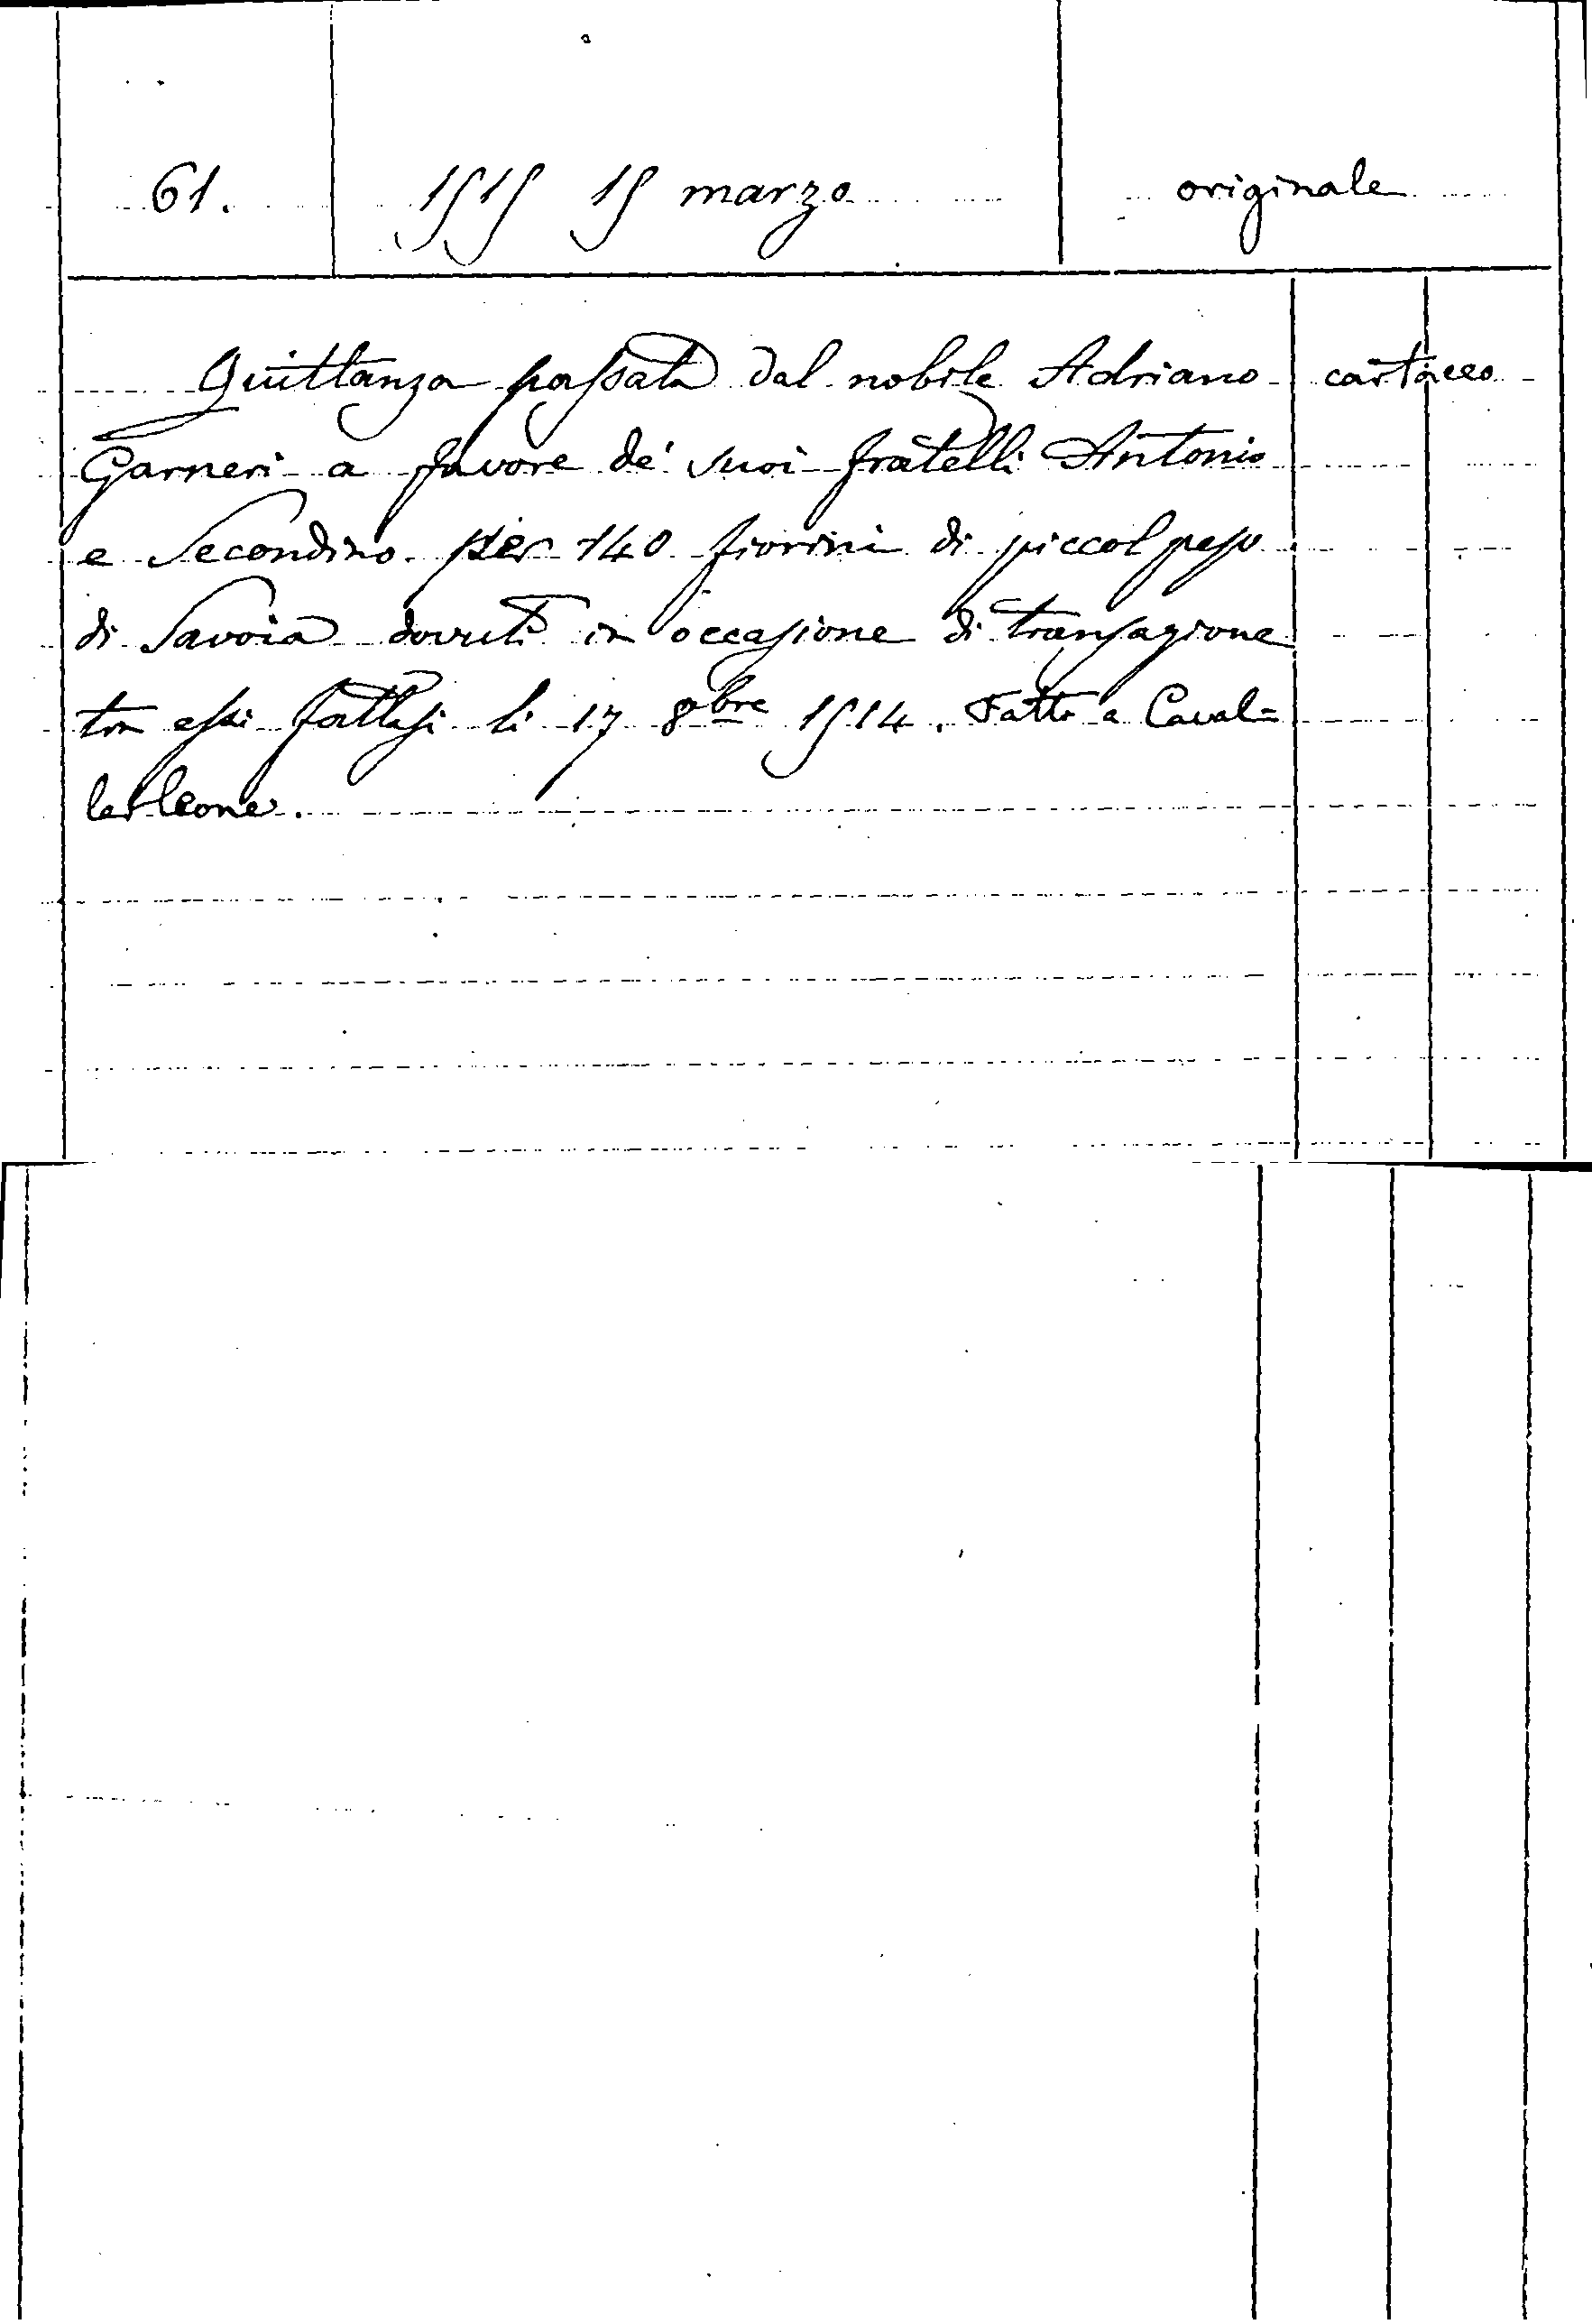 61.
1515 15 marzo
originale
Quittanza passata dal nobile Adriano
cartaceo
Garneri a favore de' suoi fratelli Antonio
e Secondino per 140 fiorini di piccol peso
di Savoia dovuti in occasione di transazione
tra essi fattasi li 17 8bre 1514. Fatto a Caval=
lerleone.